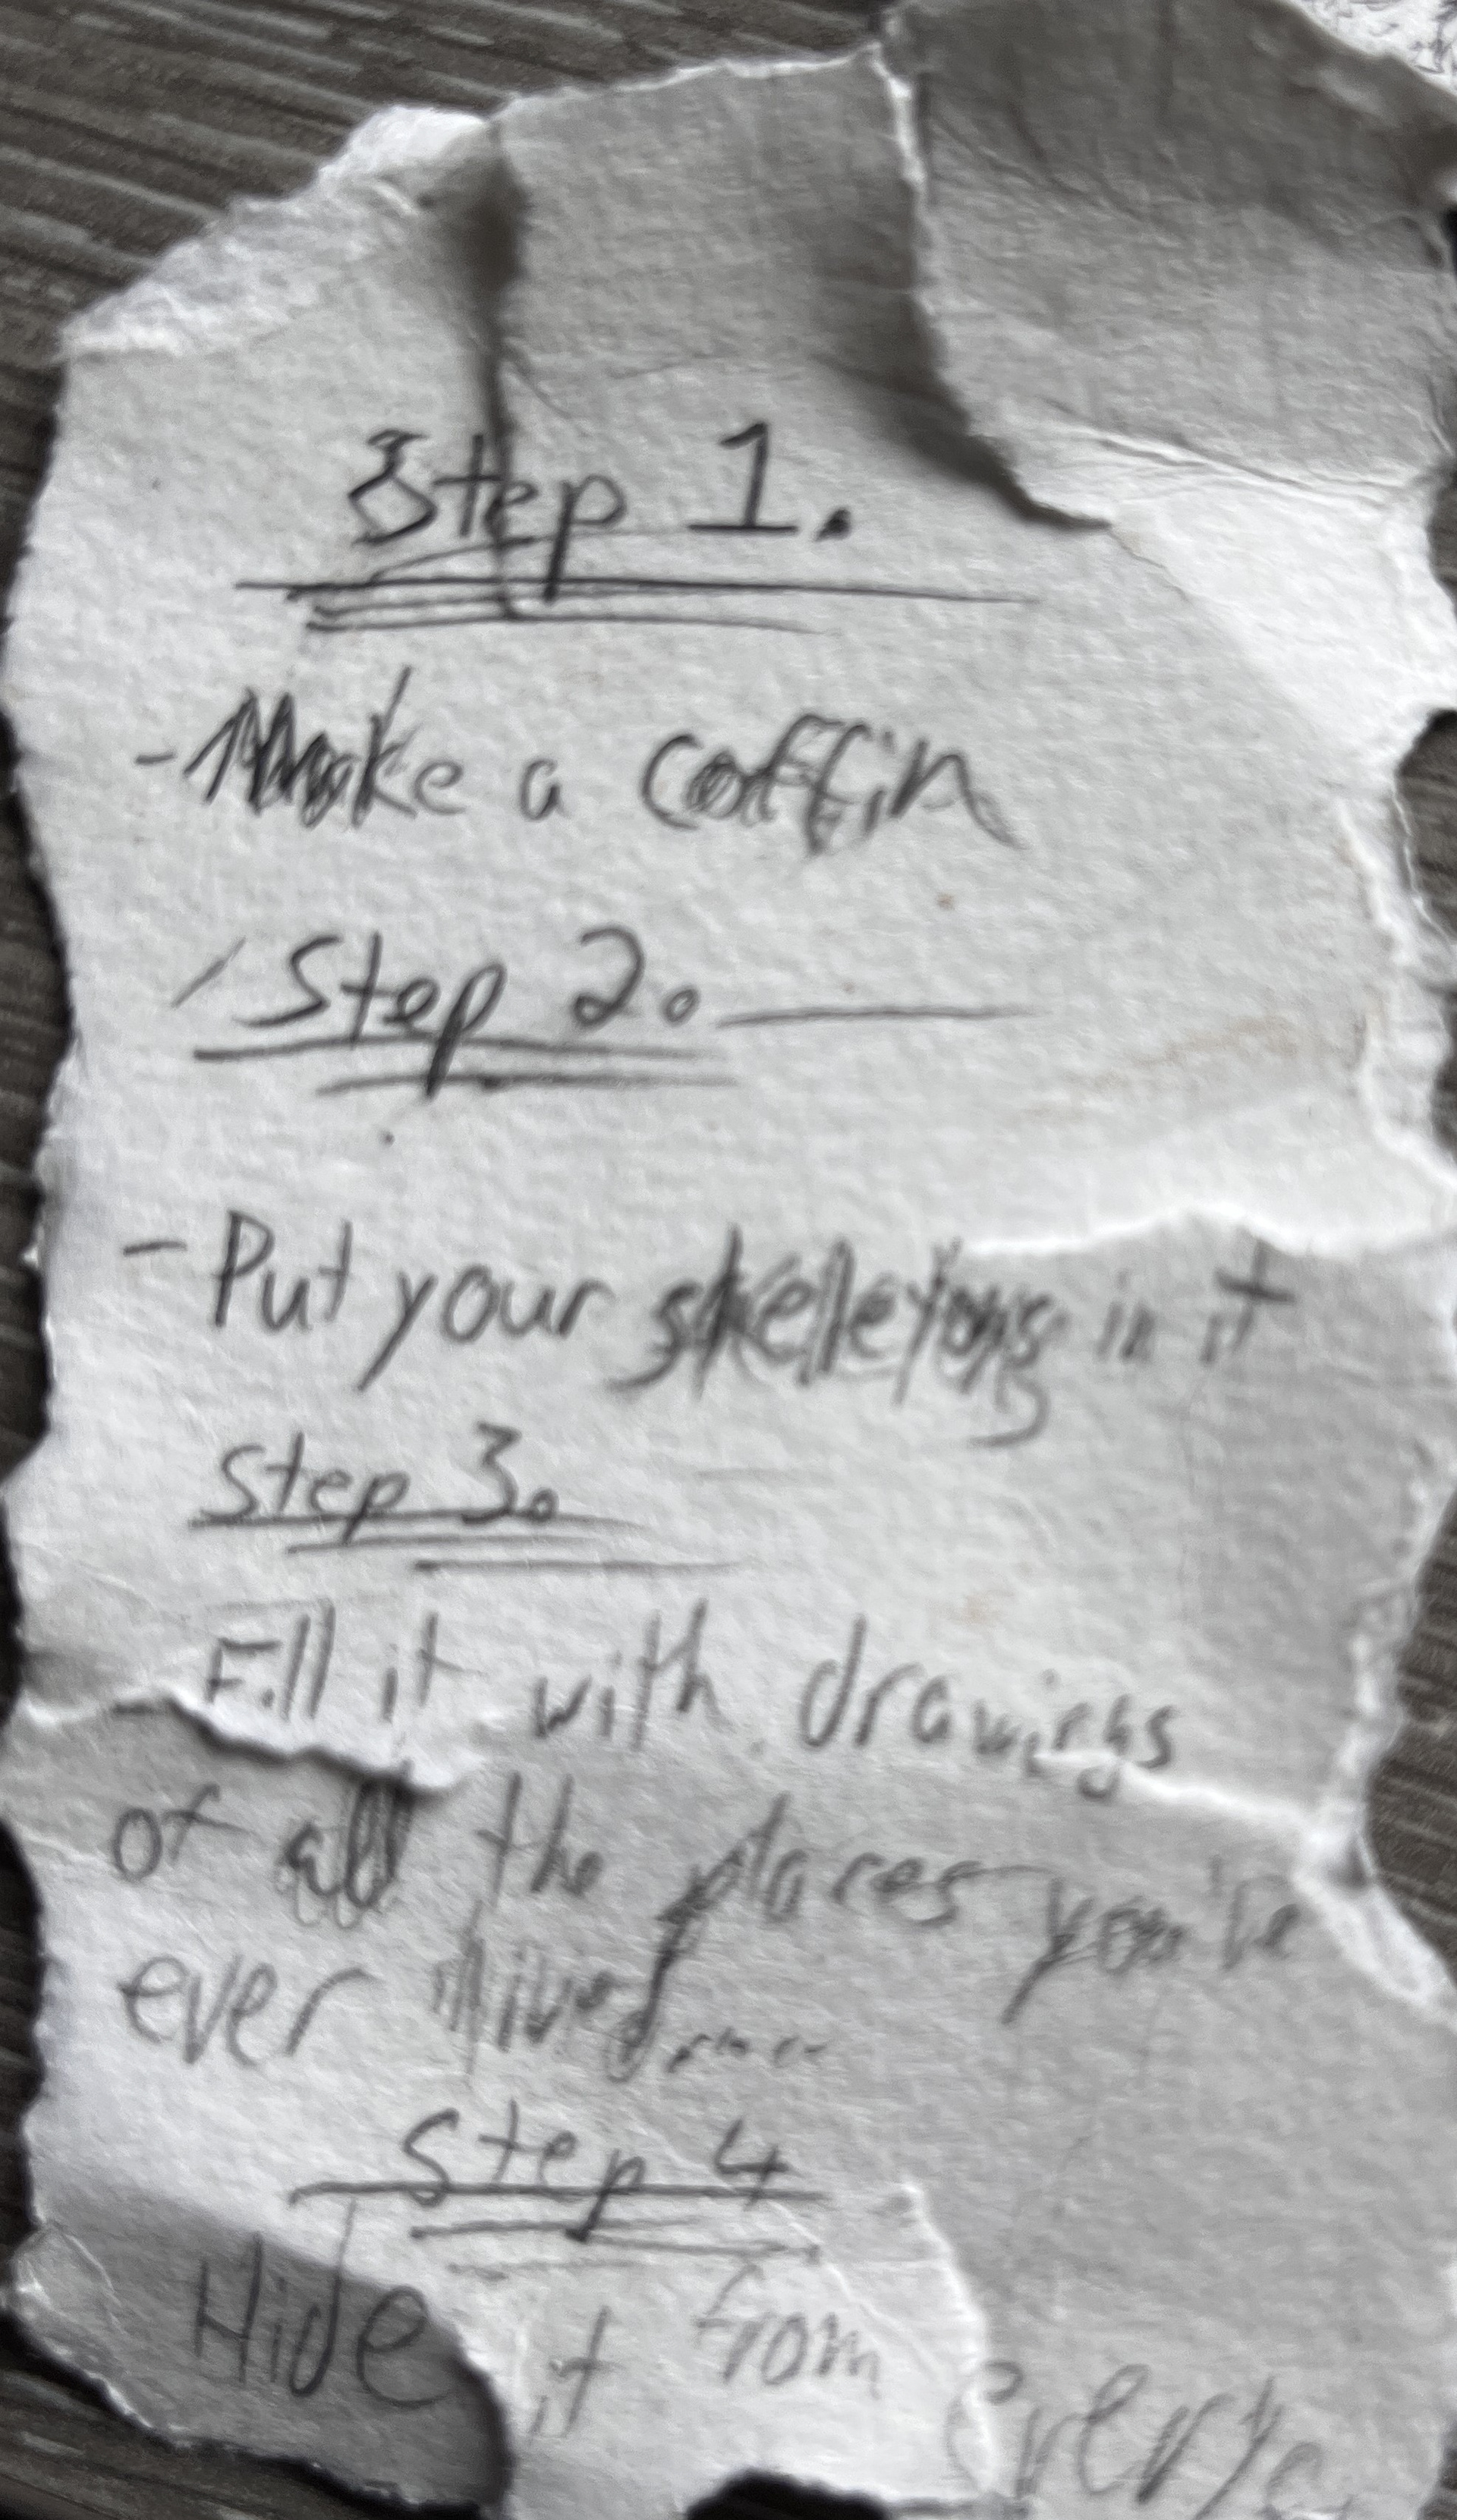 Step 1.
- Make a coffin
Step 2.
- Put your skeletons in it
Step 3.
Fill it with drawings
of all the places you've
ever lived....
Step 4
Hide it from